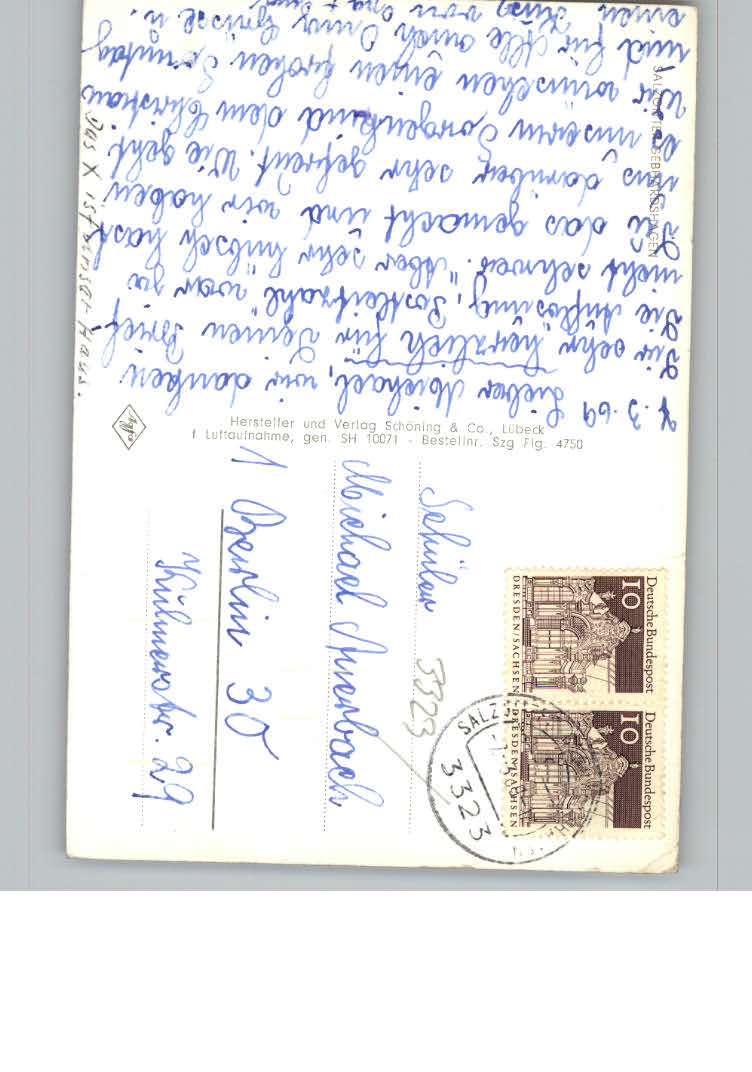 SALZGITTER-GEBHARDSHAGEN
7.3.69
Lieber Michael, wir danken
Dir sehr herzlich für Deinen Brief
Die Auflösung „Postleitzahl" war ja
nicht schwer. Aber sehr hübsch hast
Du das gemacht und wir haben
uns darüber sehr gefreut. Wie geht
es unserm Sorgenkind dem Christian
Wir wünschen einen frohen Sonntag
und für Alle auch Omi Grüsse u.
einen Kuss von
Das X ist unser Haus.
Hersteller und Verlag Schöning & Co., Lübeck
f Luftaufnahme, gen. SH 10071 - Bestellnr. Szg Flg. 4750
Agfa
Schüler
Michael Auerbach
1 Berlin 30
Kulmerstr. 29
3323
Deutsche Bundespost
10
DRESDEN/SACHSEN
Deutsche Bundespost
10
DRESDEN/SACHSEN
3323